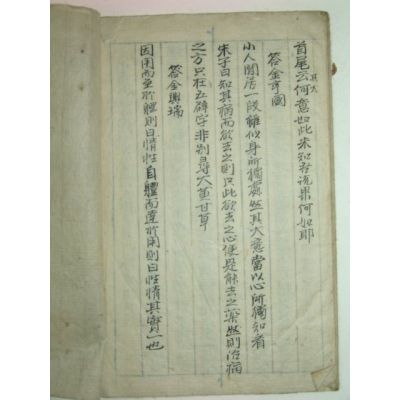 首尾云其大何意如此未知若說果何如耶
答金亨國
小人閒居一段雖似身所獨處然其大意當以心所獨知看
朱子曰知其病而欲去之則只此欲去之心便是能去之藥然則治病
之方只在五辟字非別尋大黃甘草
答金瑞
因用而至於體則曰情性自體而達於用則曰性情其實一也